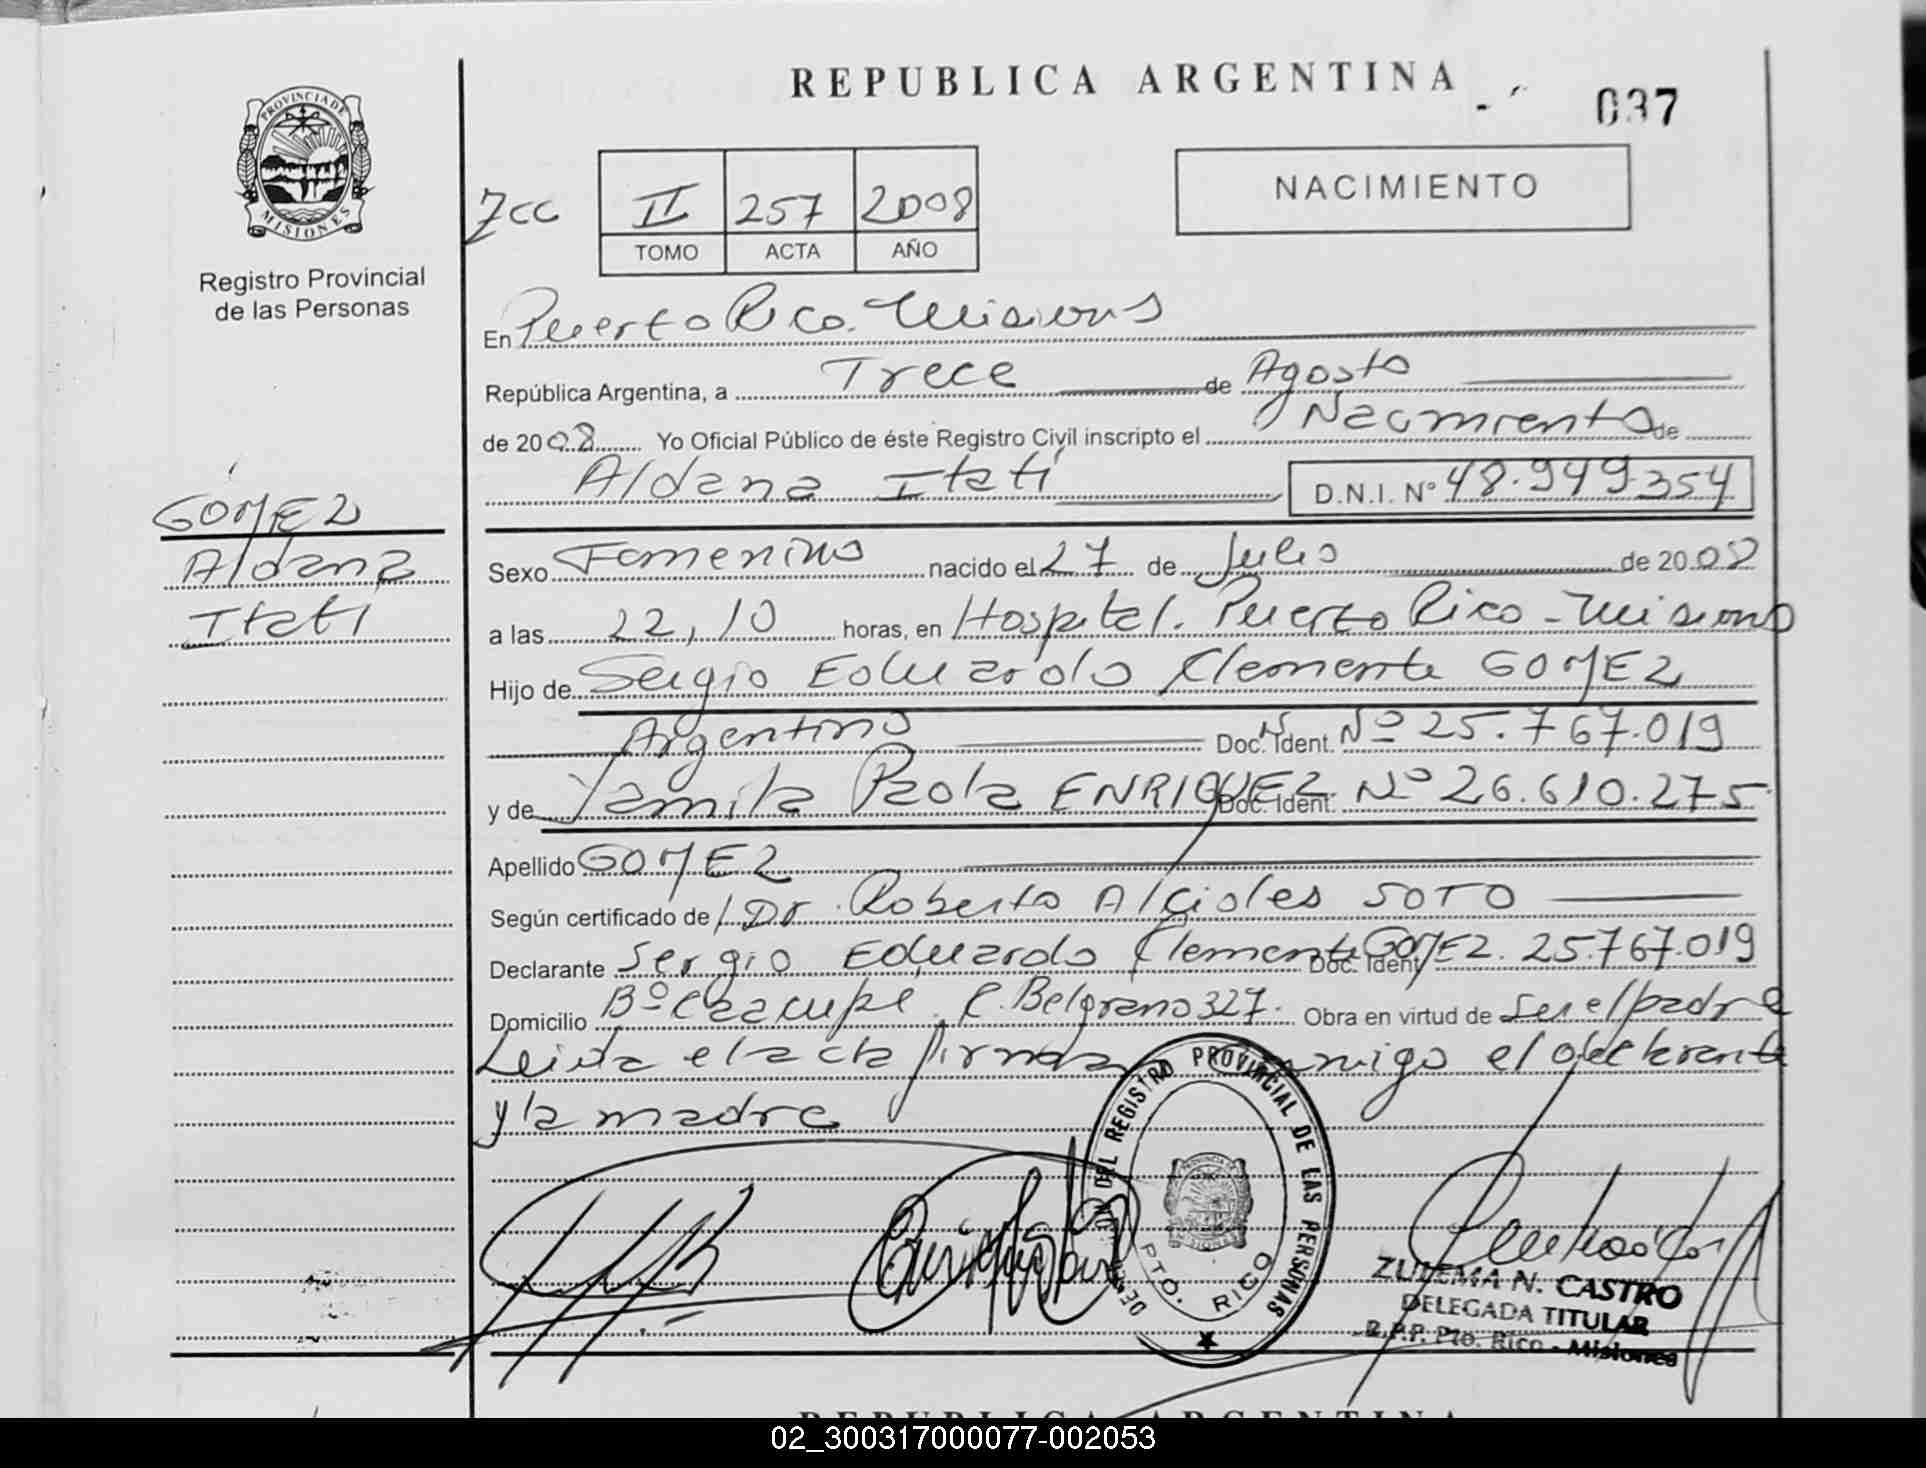 REPUBLICA ARGENTINA
037
PROVINCIA DE
MISIONES
Registro Provincial
de las Personas
7cc
II 257 2008
TOMO ACTA AÑO
NACIMIENTO
En Puerto Rico. Misiones
República Argentina, a Trece de Agosto
de 2008 Yo Oficial Público de éste Registro Civil inscripto el Nacimiento de
Aldana Itatí D.N.I. Nº 48.949.354
GOMEZ
Aldana
Itati
Sexo Femenino nacido el 27 de Julio de 2008
a las 22,10 horas, en Hospital. Puerto Rico - Misiones
Hijo de Sergio Eduardo Clemente GOMEZ
Argentino Doc. Ident. Nº 25.767.019
y de Yamila Paola ENRIQUEZ Doc. Ident. Nº 26.610.275
Apellido GOMEZ
Según certificado de / Dr. Roberto Alcides SOTO
Declarante Sergio Eduardo Clemente GOMEZ. Doc. Ident 25.767.019
Domicilio Bº Caacupé. C. Belgrano 327. Obra en virtud de ser el padre
Leida el acta firman conmigo el declarante
y la madre
DEL REGISTRO PROVINCIAL DE LAS PERSONAS
PTO. RICO
ZULEMA N. CASTRO
DELEGADA TITULAR
R.P.P. Pto. Rico - Misiones
REPUBLICA ARGENTINA
02_300317000077-002053